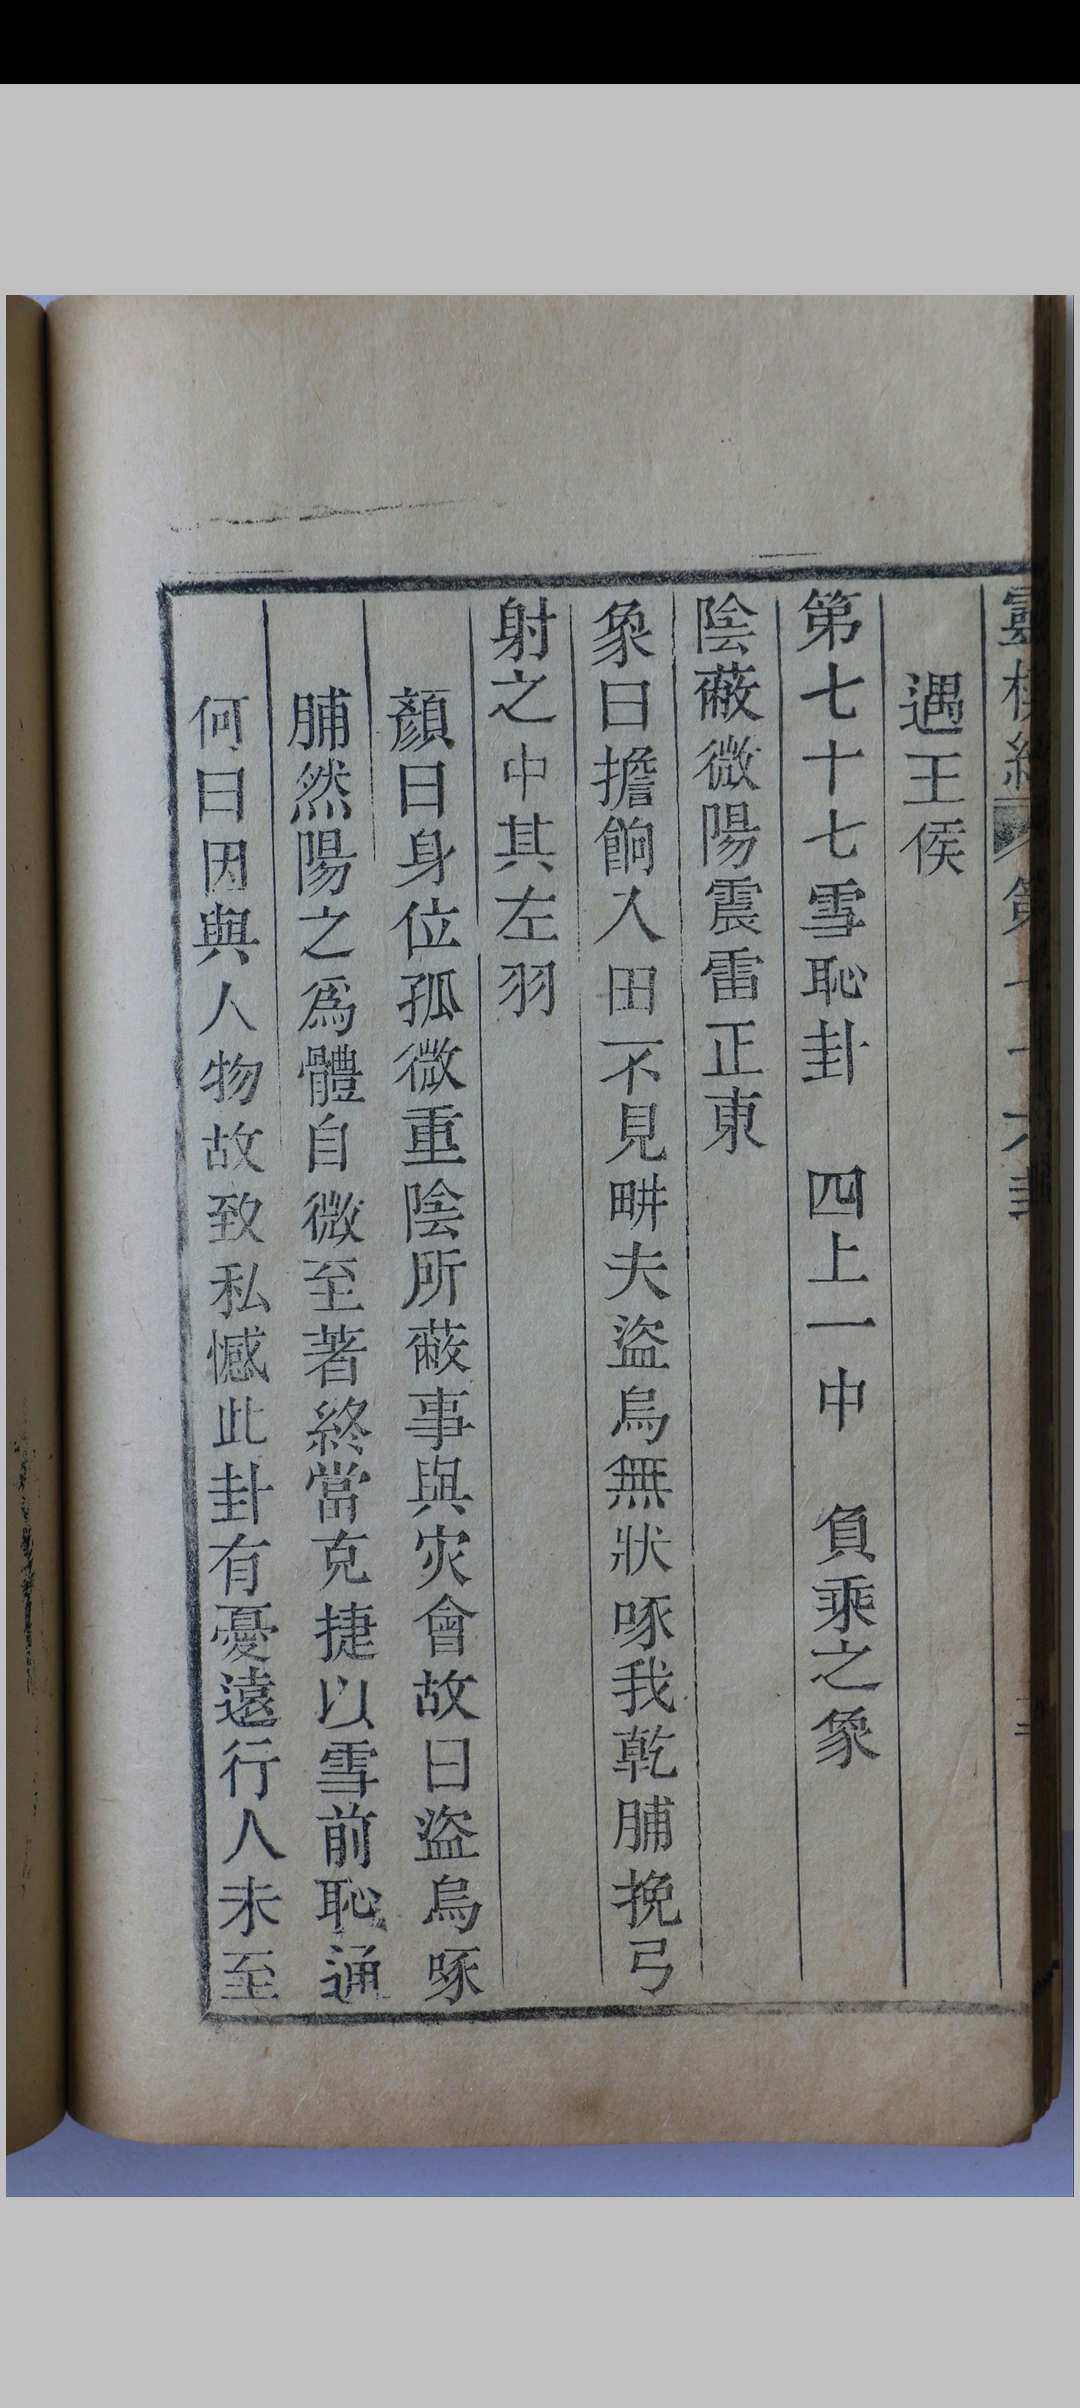 靈棋經 第七十六卦
遇王侯
第七十七雪恥卦 四上一中 負乘之象
陰蔽微陽震雷正東
象曰擔餉入田不見畊夫盜烏無狀啄我乾脯挽弓
射之中其左羽
顏曰身位孤微重陰所蔽事與灾會故曰盜烏啄
脯然陽之為體自微至著終當克捷以雪前恥通
何曰因與人物故致私憾此卦有憂遠行人未至